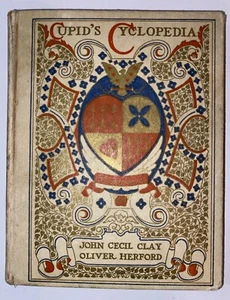 CUPID'S CYCLOPEDIA
JOHN CECIL CLAY
OLIVER HERFORD